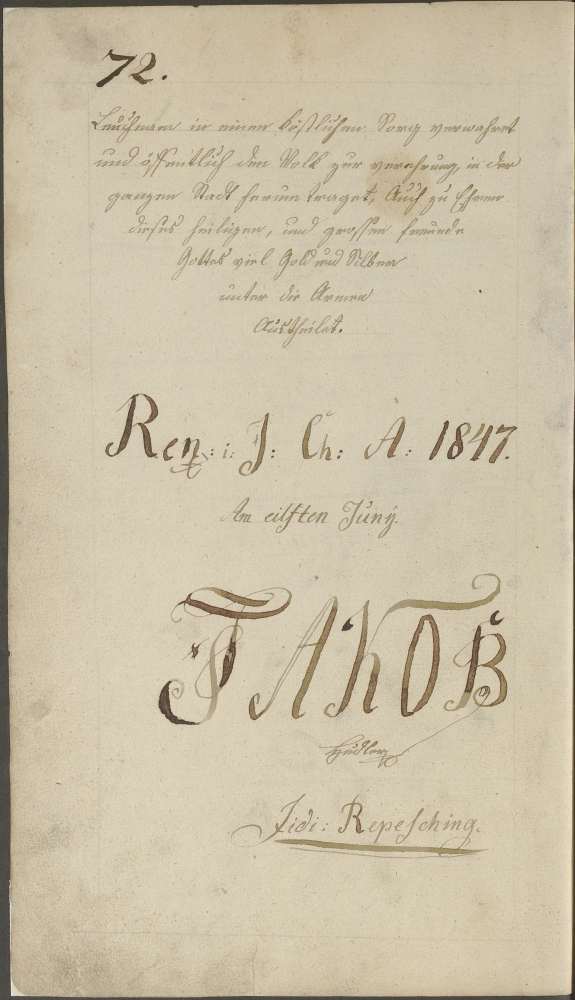 72.
Leuchnam in einen köstlichen Sarg verwahret
und öffentlich den Volk zur verehrung, in der
ganzen Stadt herum traget, Auch zu Ehren
dieses heiligen, und grossen freunds
Gottes viel Gold und Silber
unter die Armen
Austheilet.
Ren: i: J: Ch: A: 1847.
Am eilften Juny.
JAKOB
Hudler
Fidi: Repesching.